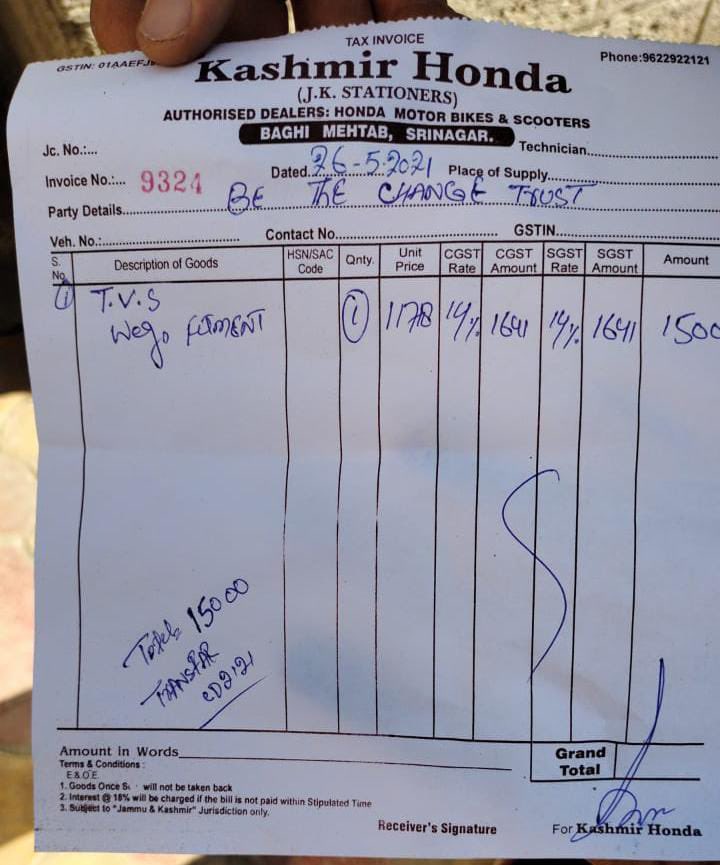 TAX INVOICE
GSTIN: 01AAEFJ
Phone:9622922121
Kashmir Honda
(J.K. STATIONERS)
AUTHORISED DEALERS: HONDA MOTOR BIKES & SCOOTERS
BAGHI MEHTAB, SRINAGAR.
Jc. No.:... Technician
Invoice No.:... 9324 Dated 26-5-2021 Place of Supply
Party Details BE THE CHANGE TRUST
Veh. No.: Contact No. GSTIN
S. No. Description of Goods HSN/SAC Code Qnty. Unit Price CGST Rate CGST Amount SGST Rate SGST Amount Amount
1 T.V.S 1 14% 1641 14% 1641 1500
Wego FITMENT
Total 15000
TRANSFAR
Amount in Words
Grand Total
Terms & Conditions :
E.&.O.E.
1. Goods Once S will not be taken back
2. Interest @ 18% will be charged if the bill is not paid within Stipulated Time
3. Subject to "Jammu & Kashmir" Jurisdiction only.
Receiver's Signature
For Kashmir Honda